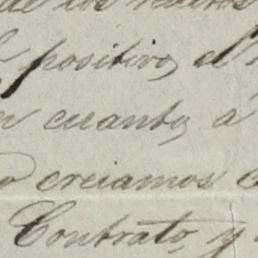 de los
positivo, el
en cuanto, á
creiamos
Contrato, y